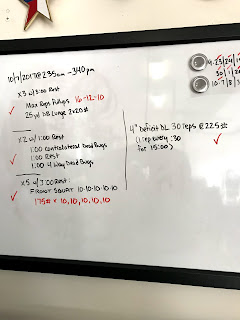 10/7/2017 @ 235am - 340pm
x3 w/3:00 Rest
Max Reps Pullups 16-12-10
25 yd DB Lunge 2x20#
x2 w/1:00 Rest
1:00 contralateral Dead Bugs
1:00 Rest
1:00 4 Way Dead Bugs
x5 w/3:00 Rest:
FRONT SQUAT 10-10-10-10-10
175# x 10, 10, 10, 10, 10
4" Deficit DL 30 reps @ 225#
(1 rep every :30
for 15:00)
30